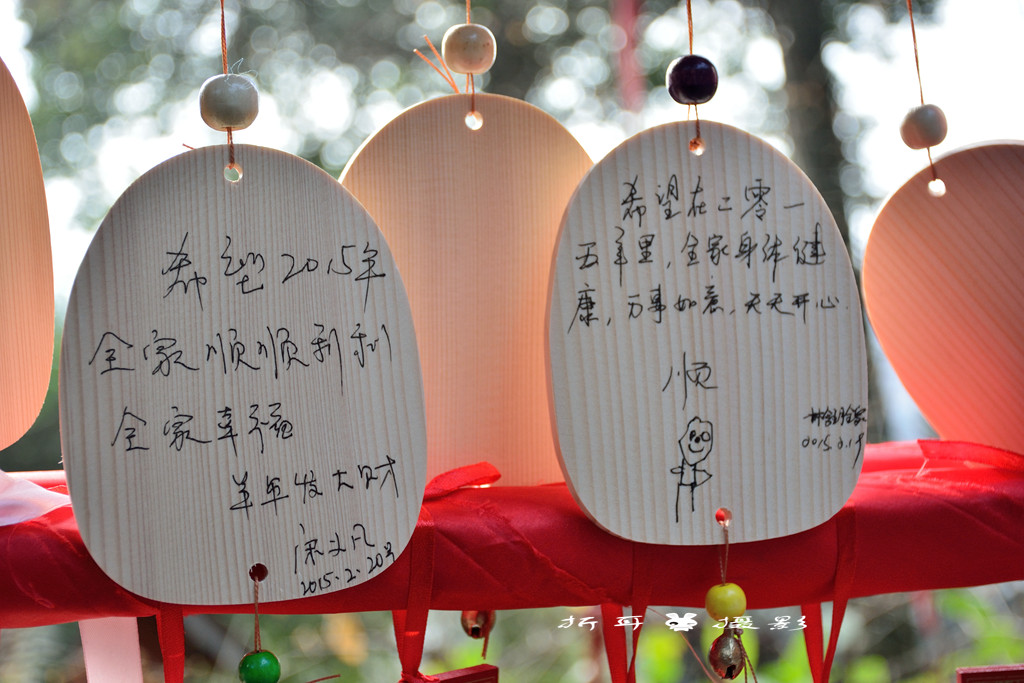 希望2015年
全家顺顺利利
全家幸福
羊年发大财
2015.2.20号
希望在二零一
五年里,全家身体健
康,万事如意,天天开心.
顺
全家
2015.2.19
摄影